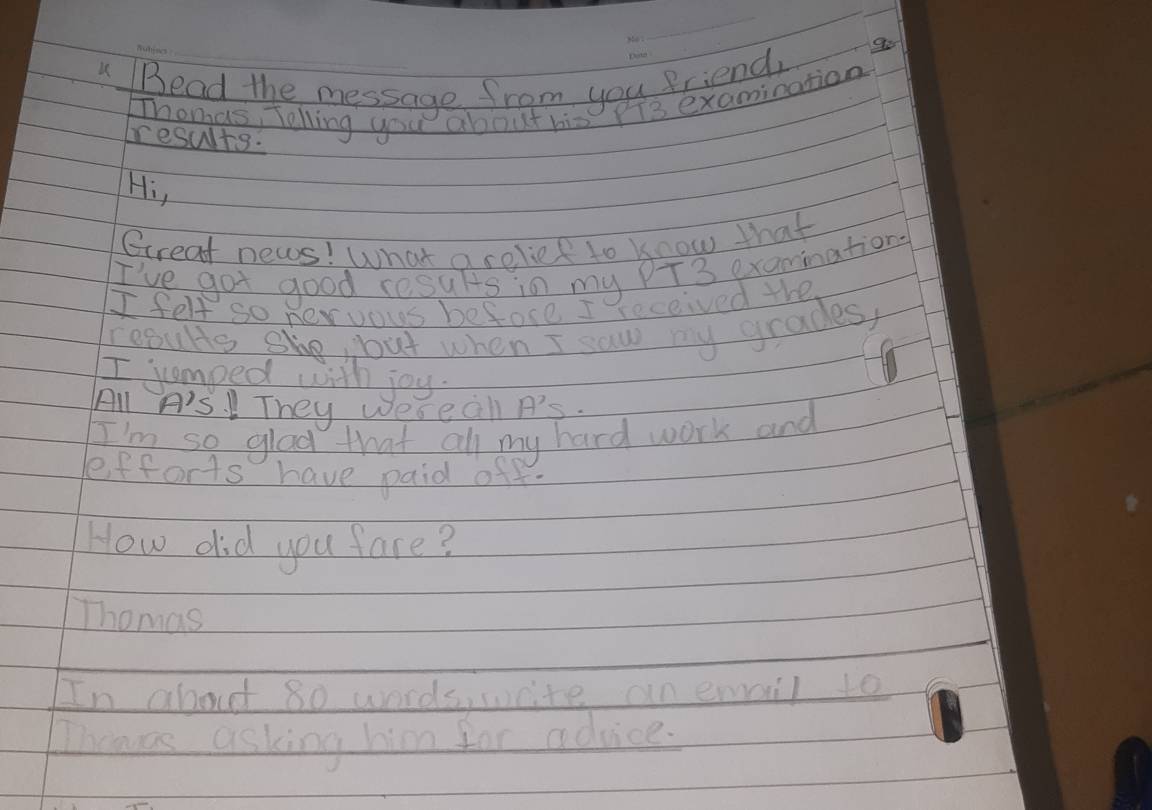 Subject :
No :
Date :
Read the message from you friend,
Thomas, Telling you about his PT3 examination
results.
Hi,
Great news! What a relief to know that
I've got good results in my PT3 examination.
I felt so nervous before I received the
results slip, but when I saw my grades,
I jumped with joy.
All A's! They were all A's.
I'm so glad that all my hard work and
efforts have paid off.
How did you fare?
Thomas
In about 80 words, write an email to
Thomas asking him for advice.